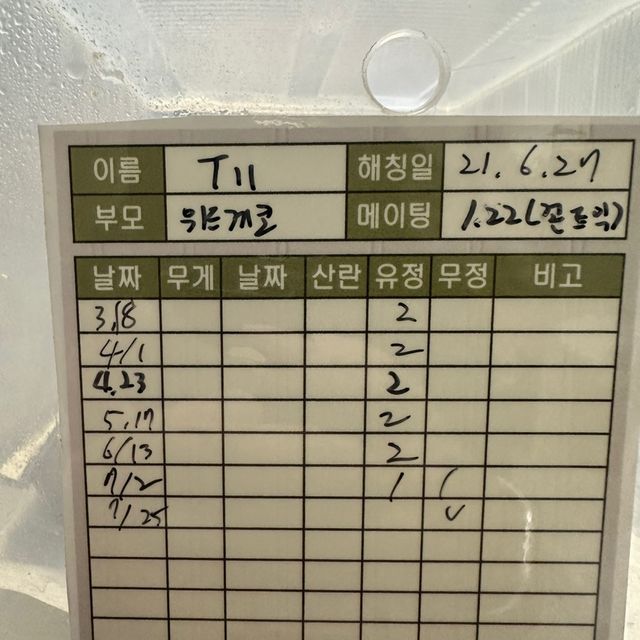 이름 T11 해칭일 21. 6. 27
부모 위드게코 메이팅 1.22(폰트익)
날짜 무게 날짜 산란 유정 무정 비고
3/8 2
4/1 2
4.23 2
5.17 2
6/13 2
7/2 1 (
7/25 v